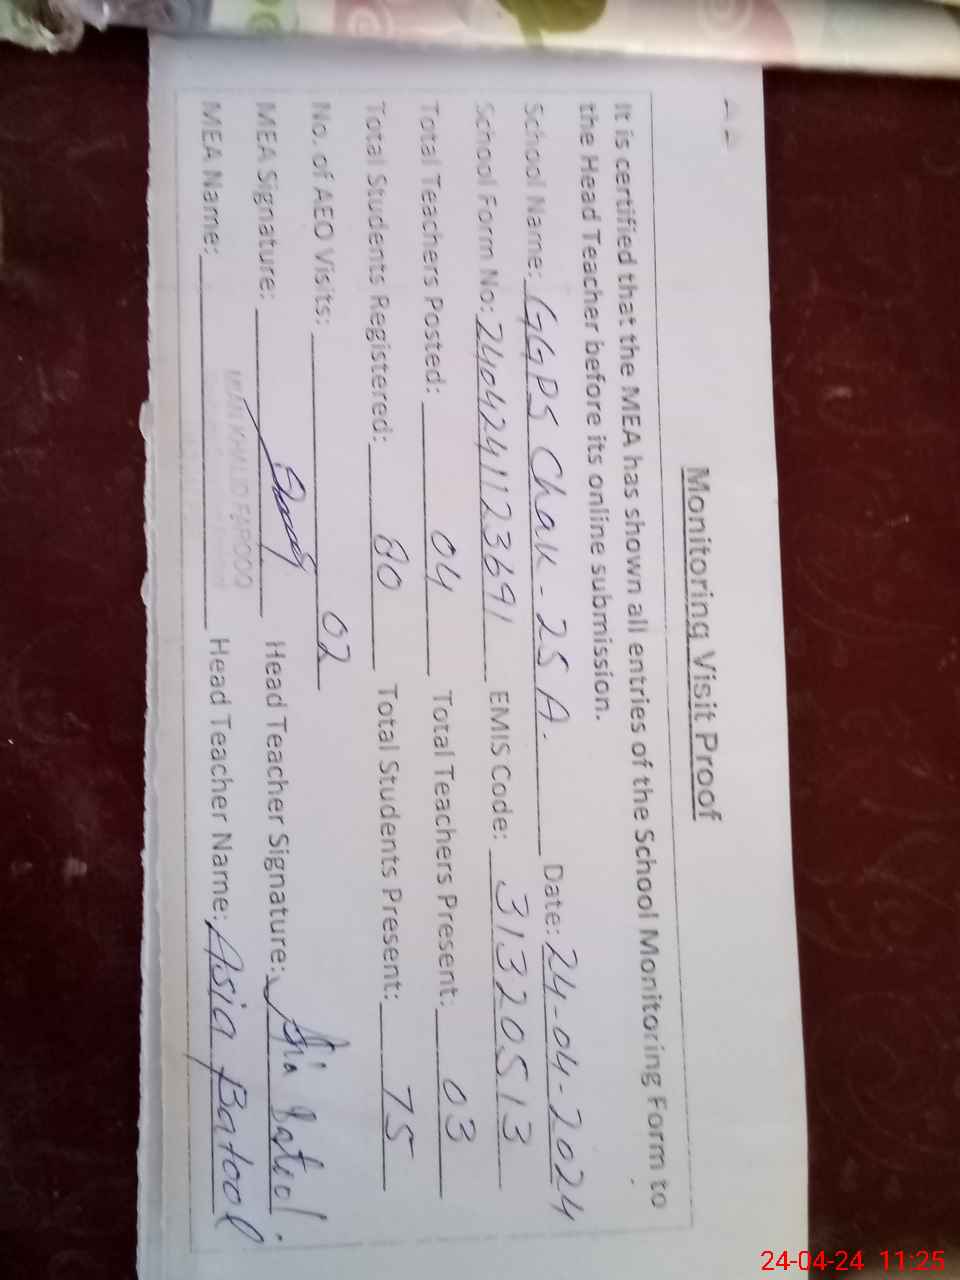 Monitoring Visit Proof
It is certified that the MEA has shown all entries of the School Monitoring Form to
the Head Teacher before its online submission.
School Name: GGPS Chak-25 A. Date: 24-04-2024
School Form No: 2404241123691 EMIS Code: 31320513
Total Teachers Posted: 04 Total Teachers Present: 03
Total Students Registered: 80 Total Students Present: 75
No. of AEO Visits: 02
MEA Signature: Head Teacher Signature: Asia Batool.
MEA Name: KHALID FAROOQ Head Teacher Name: Asia Batool
24-04-24 11:25